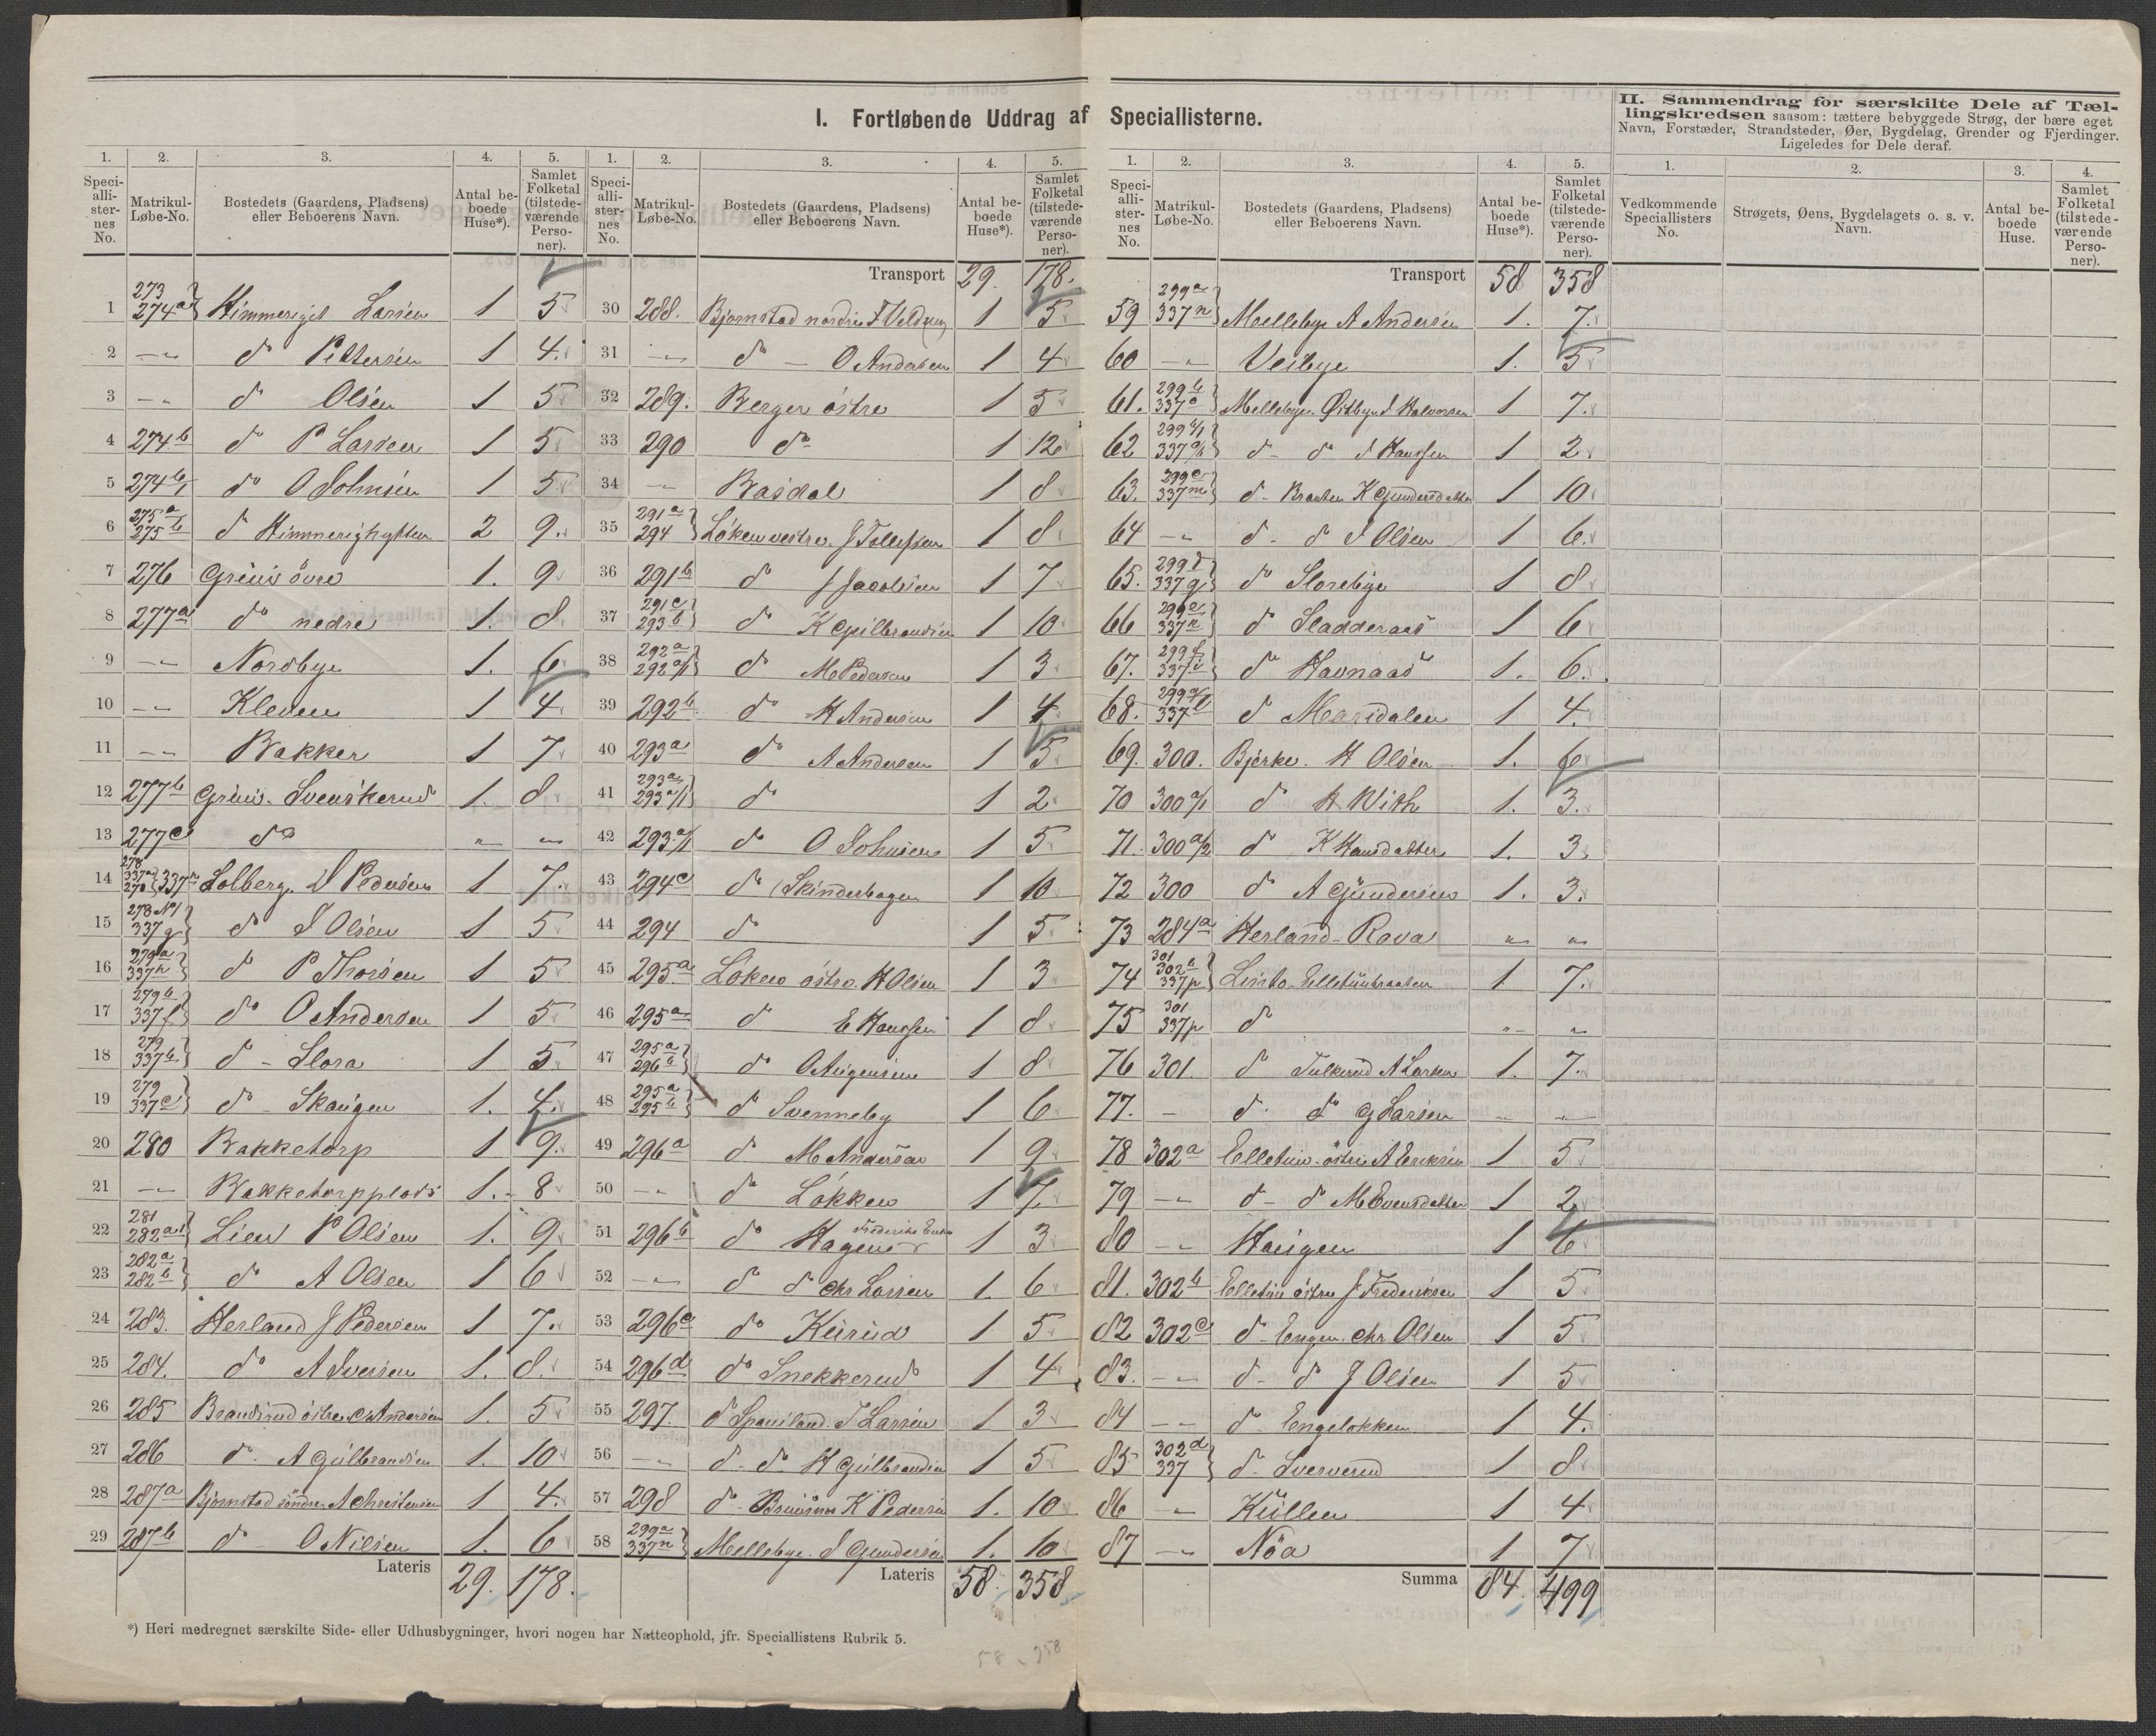 I. Fortløbende Uddrag af Speciallisterne.
II. Sammendrag for særskilte Dele af Tæl-
lingskredsen saasom: tættere bebyggede Strøg, der bære eget
Navn, Forstæder, Strandsteder, Øer, Bygdelag, Grender og Fjerdinger.
Ligeledes for Dele deraf.
1. 2. 3. 4. 5.
Speci-alli-ster-nes No. Matrikul-Løbe-No. Bostedets (Gaardens, Pladsens) eller Beboerens Navn. Antal be-boede Huse*). Samlet Folketal (tilstede-værende Perso-ner).
1 273 274a Himmerigel Larsen 1 5
2 -"- do Pettersen 1 4.
3 -"- do Olsen 1 5
4 274b do P Larsen 1 5
5 274b/1 do O Johnsen 1 5
6 275a 275b do Himmerighytten 2 9.
7 276 Griniv övre 1. 9
8 277a do nedre 1. 8
9 -"- Nordbye 1. 6
10 -"- Kleven 1 4
11 -"- Bakker 1 7
12 277b Griniv. Svenskerud 1. 8
13 277c do " "
14 278 337a 270 337 Solberg. P Pedersen 1 7.
15 278 No1 337g do S Olsen 1 5
16 279a 337h do P Thorsen 1 5
17 279b 337f do O Andersen 1 5
18 279 337b do - Slora 1 5
19 279 337c do - Skaugen 1. 4.
20 280 Bakketorp 1 9.
21 -"- Bakketorpplads 1. 8
22 281 282a Lien P Olsen 1. 9
23 282a 282b do A Olsen 1 6
24 283. Herland J Pedersen 1 7.
25 284. do A Iversen 1. 8.
26 285 Brandsrud østre C Andersen 1. 5
27 286 do A Gulbrandsen 1. 10
28 287a Bjørnstad söndre A Christensen 1 4.
29 287b do O Nilsen 1. 6
Lateris 29. 178.
1. 2. 3. 4. 5.
Speci-alli-ster-nes No. Matrikul-Løbe-No. Bostedets (Gaardens, Pladsens) eller Beboerens Navn. Antal be-boede Huse*). Samlet Folketal (tilstede-værende Perso-ner).
Transport 29. 178.
30 288. Bjørnstad nordre 1 5
31 -"- do - O Andersen 1 4
32 289. Berger östre 1 5
33 290 do 1 12
34 -"- Basdal 1 8
35 291a 294 Löken vestre. J Tollefsen 1 8
36 291b do J Jacobsen 1 7
37 291c 293b do K Gulbrandsen 1 10
38 292a 292a/1 do M Pedersen 1 3
39 292b. do H Andersen 1 4
40 293a do A Andersen 1 5
41 293a 293a/1 do 1 2
42 293a/1 do O Johnsen 1 5
43 294c do (Skinderhagen 1 10
44 294 do 1 5
45 295a Löken östre. H Olsen 1 3
46 295a do E Hansen 1 8
47 295a 296b do O Augensen 1 8
48 295a 295b do Svenneby 1 6
49 296a do M Andersen 1 9
50 -"- do Lökken 1 7.
51 296b do Hagen 1 3
52 -"- do do Chr Larsen 1. 6
53 296c do Kurud 1 5
54 296d do Snekkerud 1 4
55 297. do Spaniland. J Larsen 1 3
56 -"- do do H Gulbrandsen 1 5
57 298 do K Pedersen 1. 10
58 299a 337n Mellebye. S Gundersen 1. 10
Lateris 58. 358
1. 2. 3. 4. 5.
Speci-alli-ster-nes No. Matrikul-Løbe-No. Bostedets (Gaardens, Pladsens) eller Beboerens Navn. Antal be-boede Huse*). Samlet Folketal (tilstede-værende Perso-ner).
Transport 58 358
59 299a 337n Mellebye A Andersen 1. 7.
60 -"- Veibye 1. 5
61. 299b 337o Mellebye. Østbye S Halvorsen 1 7.
62 299b/1 337o/1 do do S Hansen 1 2
63. 299c 337m do Braaten K Gundersdatter 1 10
64 -"- do do S Olsen 1 6.
65. 299d 337g do Storebye 1 8
66 299e 337k do Sladderaas 1 6
67. 299f 337i do Havnaas 1. 6.
68. 299g 337l do Marsdalen 1 4.
69. 300. Bjerke. H Olsen 1. 6
70 300a/1 do H With 1. 3.
71. 300a/2 do K Hansdatter 1. 3.
72 300 do A Gundersen 1. 3.
73 284a Herland - Rava " "
74 301 302b 337p Linto - Elletunbraaten 1 7.
75 301 337p do " "
76 301. do Julkerud A Larsen 1. 7.
77. - do do G Larsen " "
78 302a Elletun østre A Eriksen 1 5
79 -"- do do M Evensdatter 1 2
80 -"- Haugen 1 6
81. 302b Elletun östre J Frederiksen 1 5
82 302c do Engen. Chr Olsen 1 5
83. -"- do do J Olsen 1 5
84 -"- do Engelökken 1 4.
85 302d 337 do Sververud 1 8
86 -"- Küllen 1 4
87 -"- Nöa 1 7
Summa 84. 499
1. 2. 3. 4.
Vedkommende Speciallisters No. Strøgets, Øens, Bygdelagets o. s. v. Navn. Antal be-boede Huse. Samlet Folketal (tilstede-værende Perso-ner).
*) Heri medregnet særskilte Side- eller Udhusbygninger, hvori nogen har Natteophold, jfr. Speciallistens Rubrik 5.
58 358